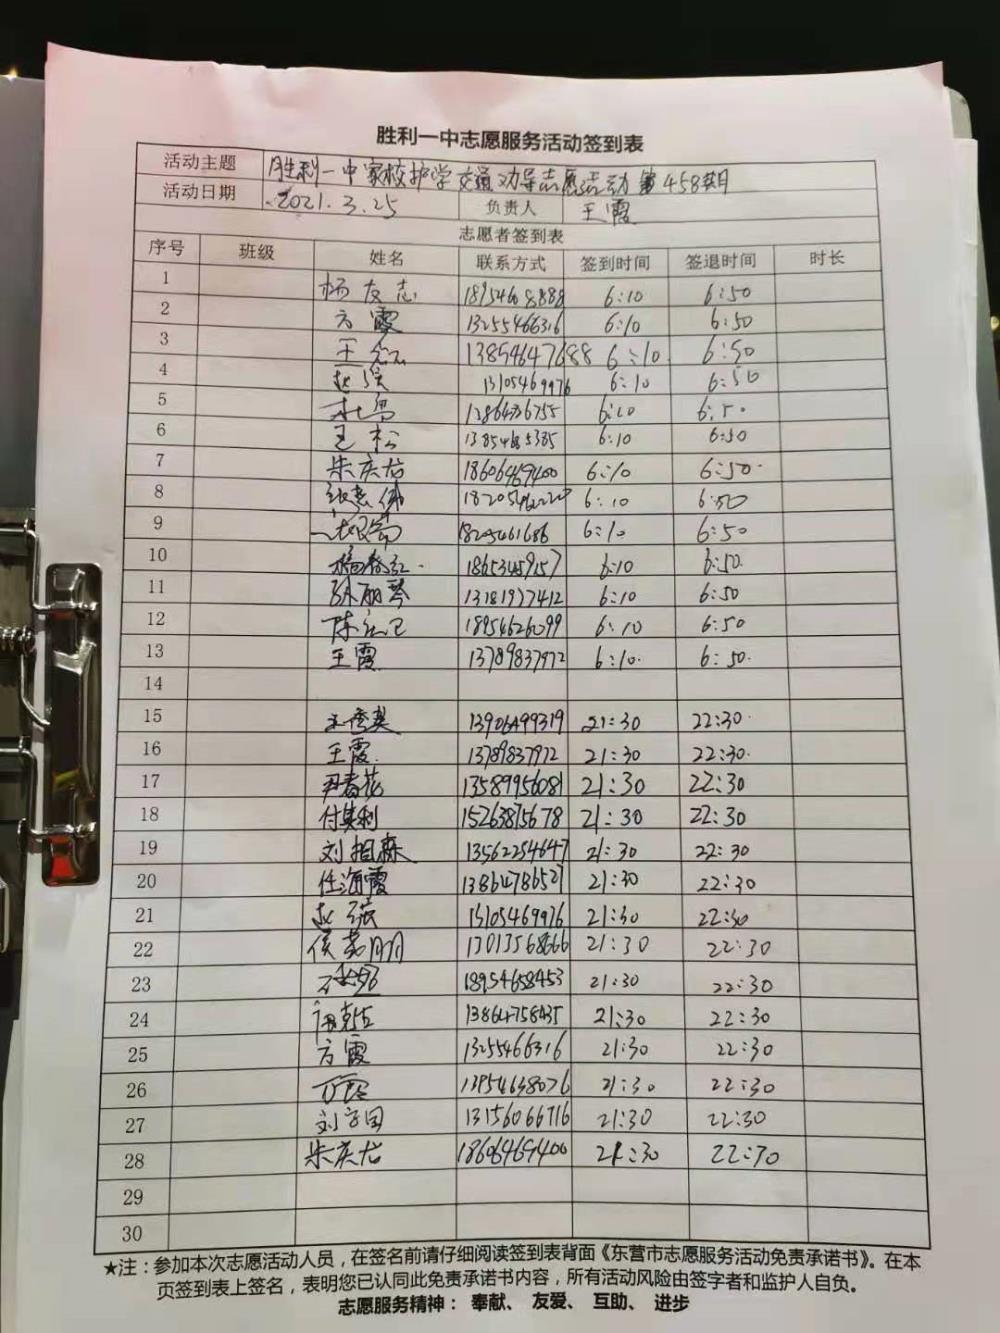 胜利一中志愿服务活动签到表
活动主题 胜利一中家校护学交通劝导志愿活动第458期
活动日期 2021.3.25 负责人 王霞
志愿者签到表
序号 班级 姓名 联系方式 签到时间 签退时间 时长
1 杨友志 18954608888 6:10 6:50
2 方霞 13255466316 6:10 6:50
3 13854647688 6:10 6:50
4 13105469976 6:10 6:50
5 6:10 6:50
6 王松 6:10 6:50
7 朱庆吉 18606469400 6:10 6:50
8 6:10 6:50
9 18205461686 6:10 6:50
10 18653459157 6:10 6:50
11 孙丽琴 13181977412 6:10 6:50
12 18954626099 6:10 6:50
13 王霞 13789837972 6:10 6:50
14
15 13906499319 21:30 22:30
16 王霞 13789837972 21:30 22:30
17 尹春花 13589956081 21:30 22:30
18 付其利 15263815678 21:30 22:30
19 刘相森 13562254647 21:30 22:30
20 任海霞 13864786527 21:30 22:30
21 13105469976 21:30 22:30
22 13013568666 21:30 22:30
23 18954658453 21:30 22:30
24 13864758435 21:30 22:30
25 方霞 13255466316 21:30 22:30
26 13954638076 21:30 22:30
27 13156066716 21:30 22:30
28 朱庆吉 18606469400 21:30 22:30
29
30
★注：参加本次志愿活动人员，在签名前请仔细阅读签到表背面《东营市志愿服务活动免责承诺书》。在本
页签到表上签名，表明您已认同此免责承诺书内容，所有活动风险由签字者和监护人自负。
志愿服务精神： 奉献、 友爱、 互助、 进步